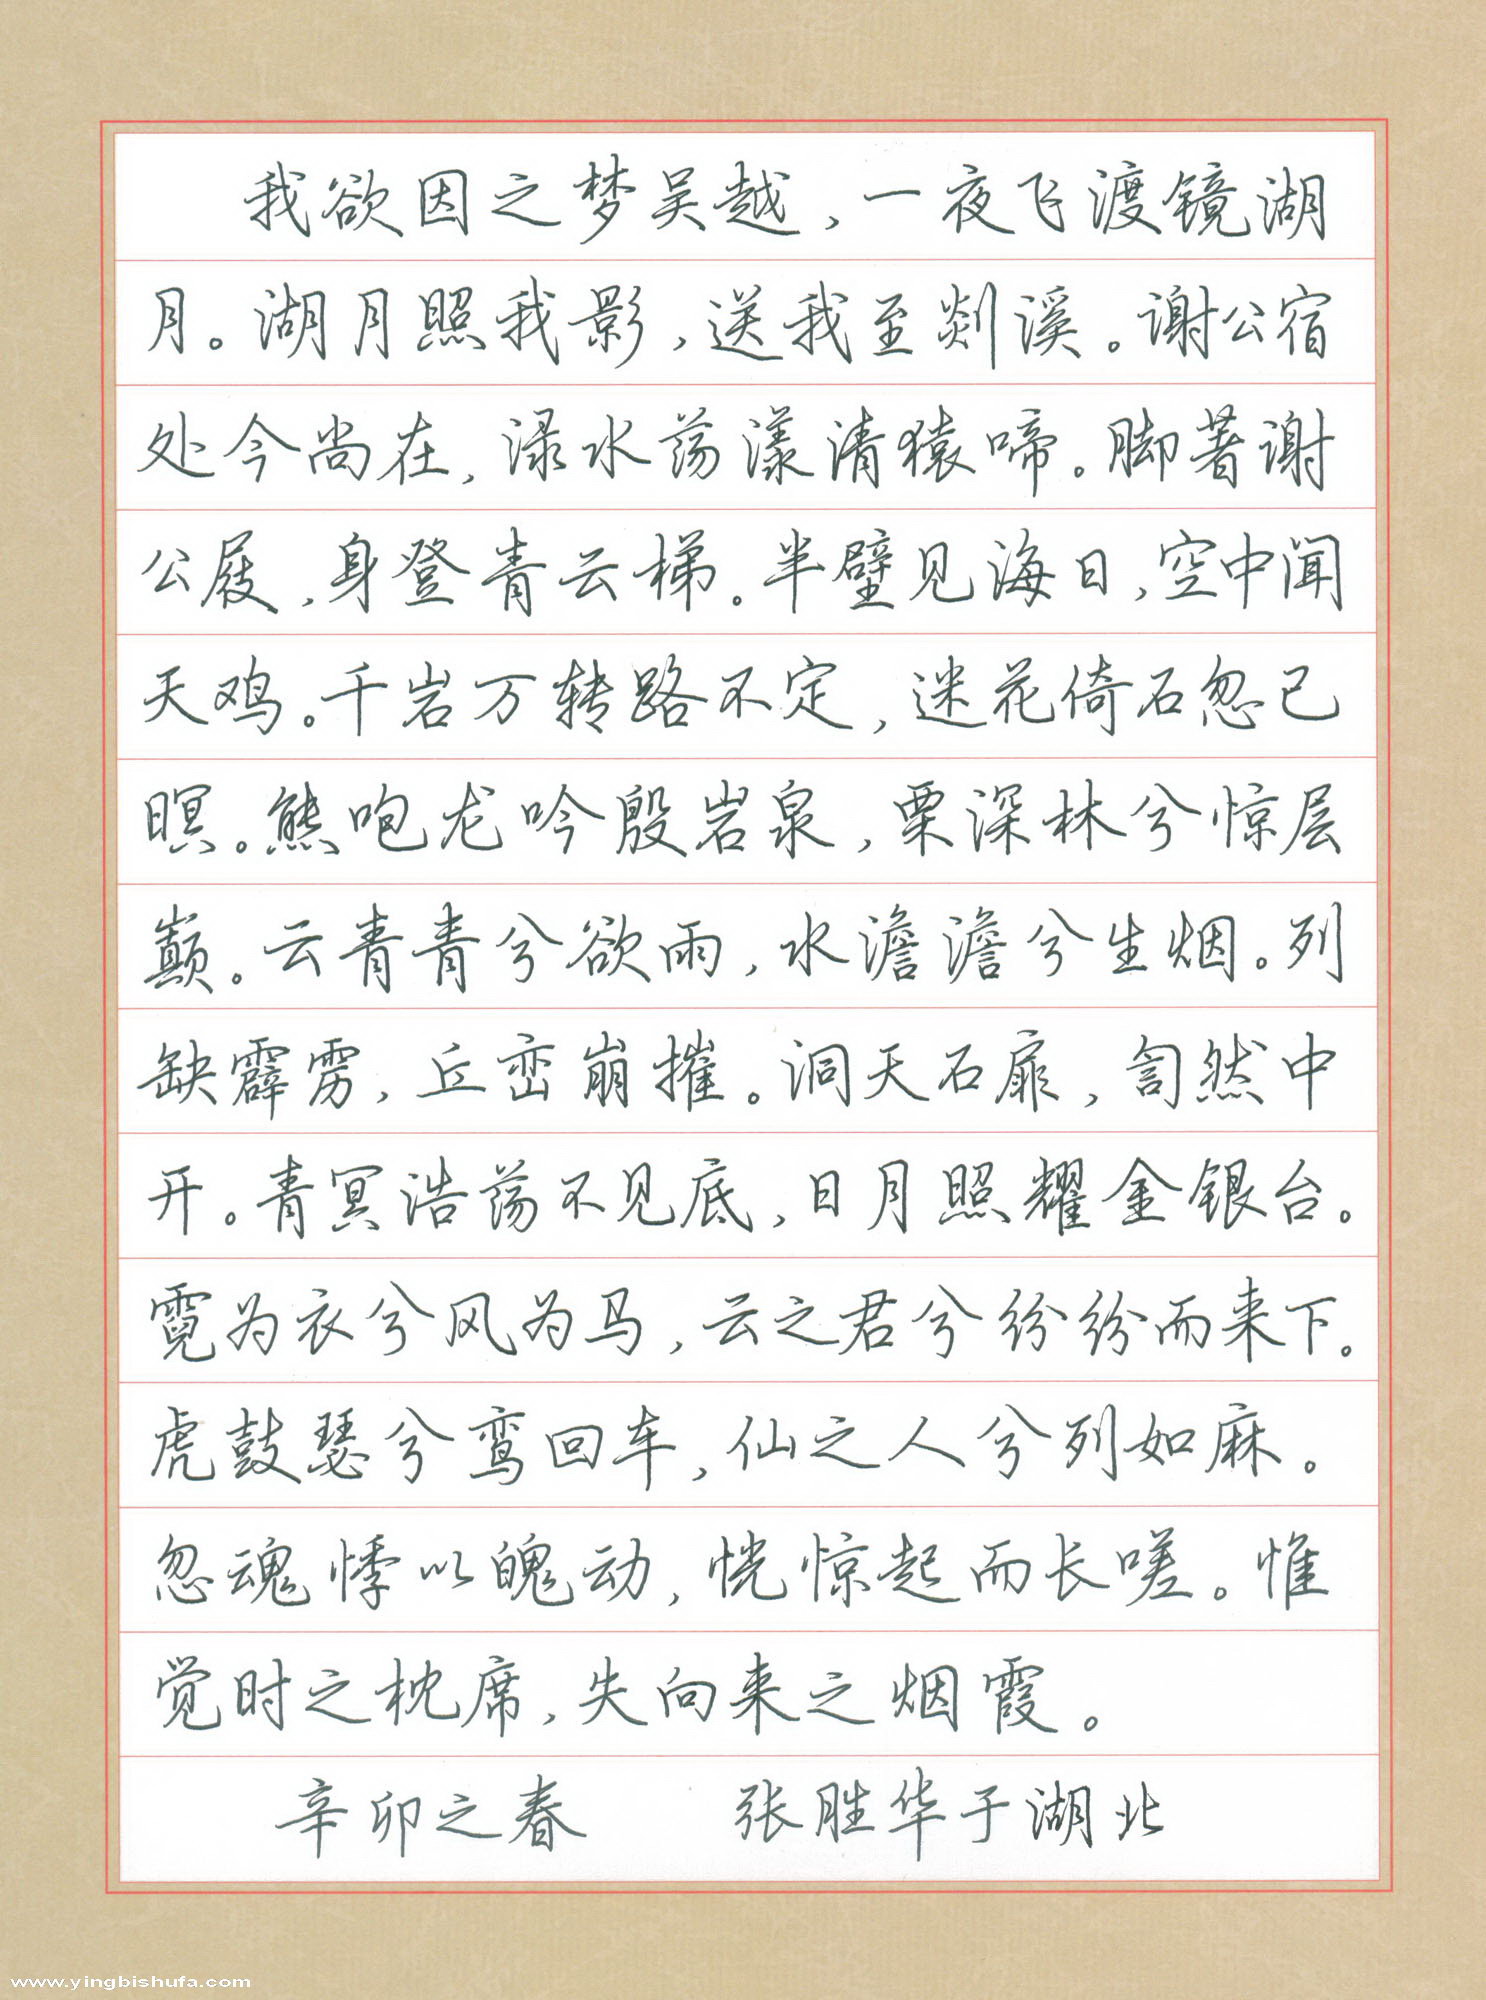 我欲因之梦吴越，一夜飞渡镜湖
月。湖月照我影，送我至剡溪。谢公宿
处今尚在，渌水荡漾清猿啼。脚著谢
公屐，身登青云梯。半壁见海日，空中闻
天鸡。千岩万转路不定，迷花倚石忽已
暝。熊咆龙吟殷岩泉，栗深林兮惊层
巅。云青青兮欲雨，水澹澹兮生烟。列
缺霹雳，丘峦崩摧。洞天石扉，訇然中
开。青冥浩荡不见底，日月照耀金银台。
霓为衣兮风为马，云之君兮纷纷而来下。
虎鼓瑟兮鸾回车，仙之人兮列如麻。
忽魂悸以魄动，恍惊起而长嗟。惟
觉时之枕席，失向来之烟霞。
辛卯之春　　张胜华于湖北
www.yingbishufa.com